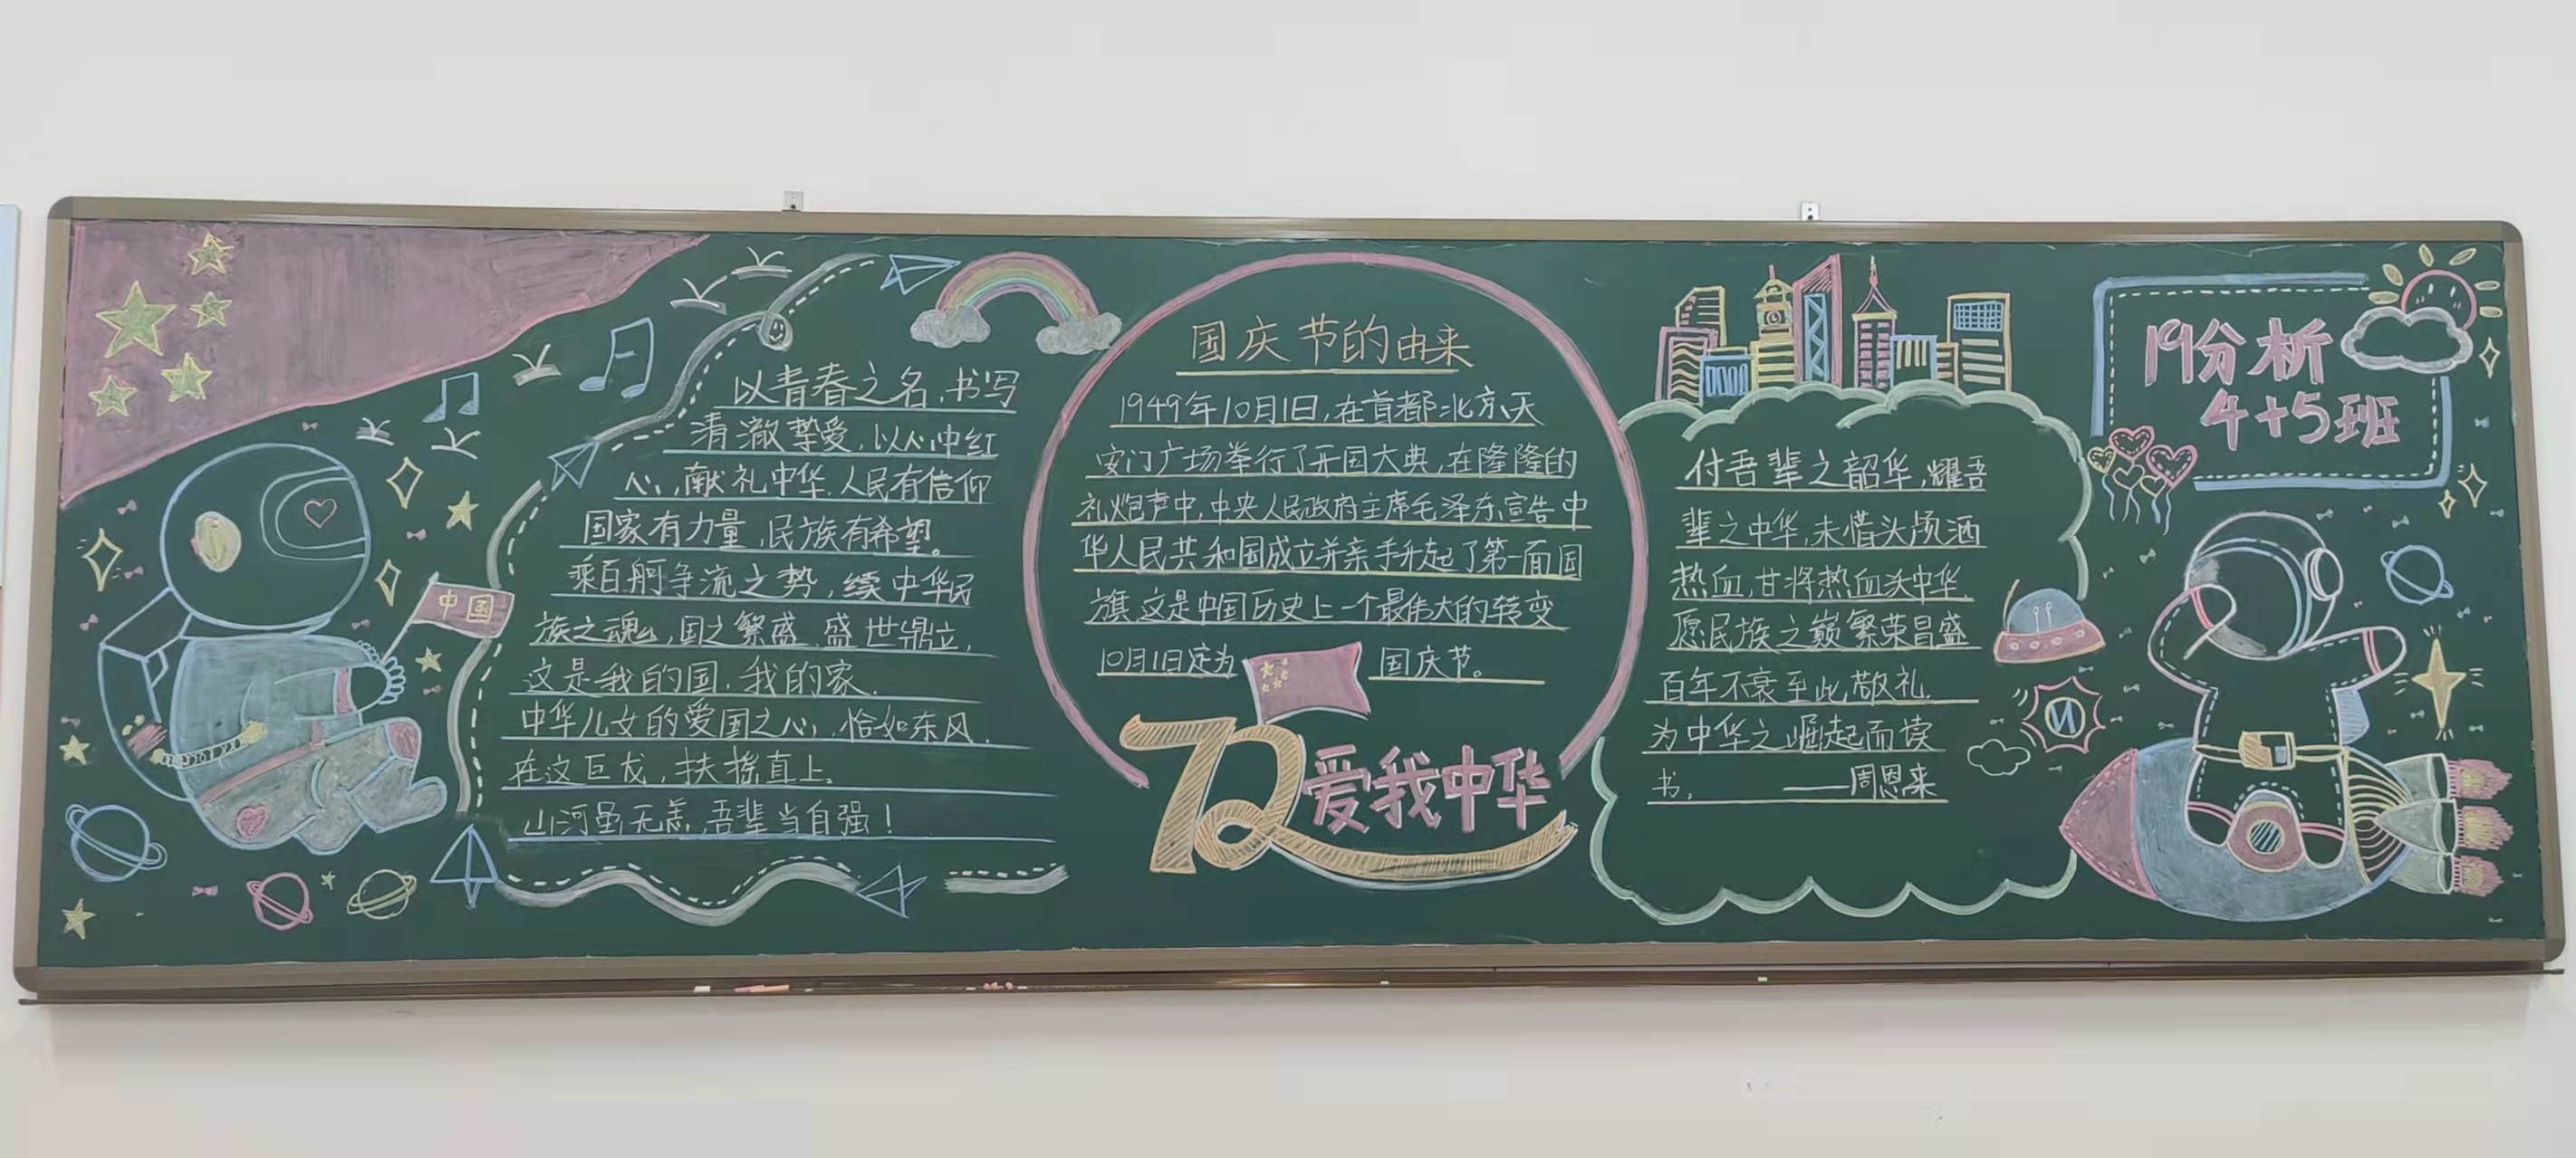 中国
以青春之名,书写
清澈挚爱,以心中红
心,献礼中华.人民有信仰
国家有力量,民族有希望。
乘百舸争流之势,续中华民
族之魂,国之繁盛,盛世鼎立,
这是我的国,我的家.
中华儿女的爱国之心,恰如东风,
在这巨龙,扶摇直上.
山河虽无恙,吾辈当自强!
国庆节的由来
1949年10月1日,在首都北京天
安门广场举行了开国大典,在隆隆的
礼炮声中,中央人民政府主席毛泽东宣告中
华人民共和国成立并亲手升起了第一面国
旗.这是中国历史上一个最伟大的转变
10月1日定为 国庆节。
72爱我中华
付吾辈之韶华,耀吾
辈之中华,未惜头颅洒
热血,甘将热血沃中华.
愿民族之巅繁荣昌盛
百年不衰至此,敬礼.
为中华之崛起而读
书. ——周恩来
19分析
4+5班